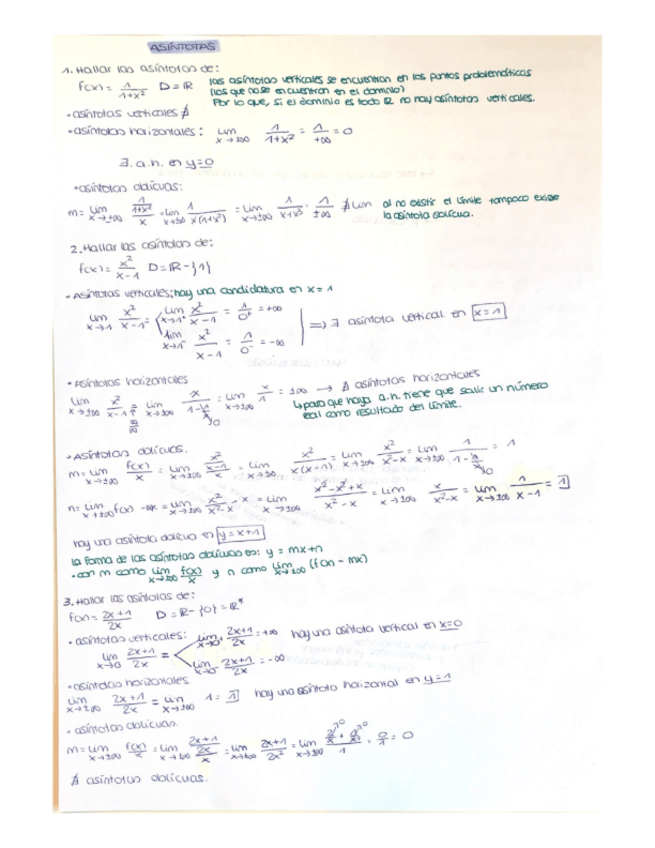 ASÍNTOTAS
1. Hallar las asíntotas de:
f(x) = 1/(1+x²) D = ℝ
las asíntotas verticales se encuentran en los puntos problemáticos
(los que no se encuentran en el dominio)
Por lo que, si el dominio es todo ℝ no hay asíntotas verticales.
• asíntotas verticales ∄
• asíntotas horizontales: lim x→±∞ 1/(1+x²) = 1/+∞ = 0
∃. a.h. en y=0
• asíntotas oblicuas:
m = lim x→±∞ (1/(1+x²))/x = lim x→±∞ 1/(x(1+x²)) = lim x→±∞ 1/(x+x³) · 1/±∞ ∄ lim
al no existir el límite tampoco existe
la asíntota oblicua.
2. Hallar las asíntotas de:
f(x) = x²/(x-1) D = ℝ-{1}
• Asíntotas verticales; hay una candidatura en x = 1
lim x→1 x²/(x-1) = lim x→1⁺ x²/(x-1) = 1/0⁺ = +∞
lim x→1⁻ x²/(x-1) = 1/0⁻ = -∞
⇒ ∃ asíntota vertical en x=1
• Asíntotas horizontales
lim x→±∞ x²/(x-1) = ∞/∞ lim x→±∞ x/(1-1/x) = lim x→±∞ x/1 = ±∞ → ∄ asíntotas horizontales
↳ para que haya a.h. tiene que salir un número
real como resultado del límite.
• Asíntotas oblicuas.
m = lim x→±∞ f(x)/x = lim x→±∞ (x²/(x-1))/x = lim x→±∞ x²/(x(x-1)) = lim x→±∞ x²/(x²-x) = lim x→±∞ 1/(1-1/x) = 1
n = lim x→±∞ f(x) - mx = lim x→±∞ x²/(x²-x) - x = lim x→±∞ (x²-x²+x)/(x²-x) = lim x→±∞ x/(x²-x) = lim x→±∞ 1/(x-1) = 1
hay una asíntota oblicua en y=x+1
la forma de las asíntotas oblicuas es: y = mx+n
• con m como lim x→±∞ f(x)/x y n como lim x→±∞ (f(x) - mx)
3. Hallar las asíntotas de:
f(x) = (2x+1)/2x D = ℝ-{0} = ℝ*
• asíntotas verticales:
lim x→0 (2x+1)/2x = lim x→0⁺ (2x+1)/2x = +∞ hay una asíntota vertical en x=0
lim x→0⁻ (2x+1)/2x = -∞
• asíntotas horizontales
lim x→±∞ (2x+1)/2x = lim x→±∞ 1 = 1 hay una asíntota horizontal en y=1
• asíntotas oblicuas.
m = lim x→±∞ f(x)/x = lim x→±∞ ((2x+1)/2x)/x = lim x→±∞ (2x+1)/2x² = lim x→±∞ = 0/1 = 0
∄ asíntotas oblicuas.